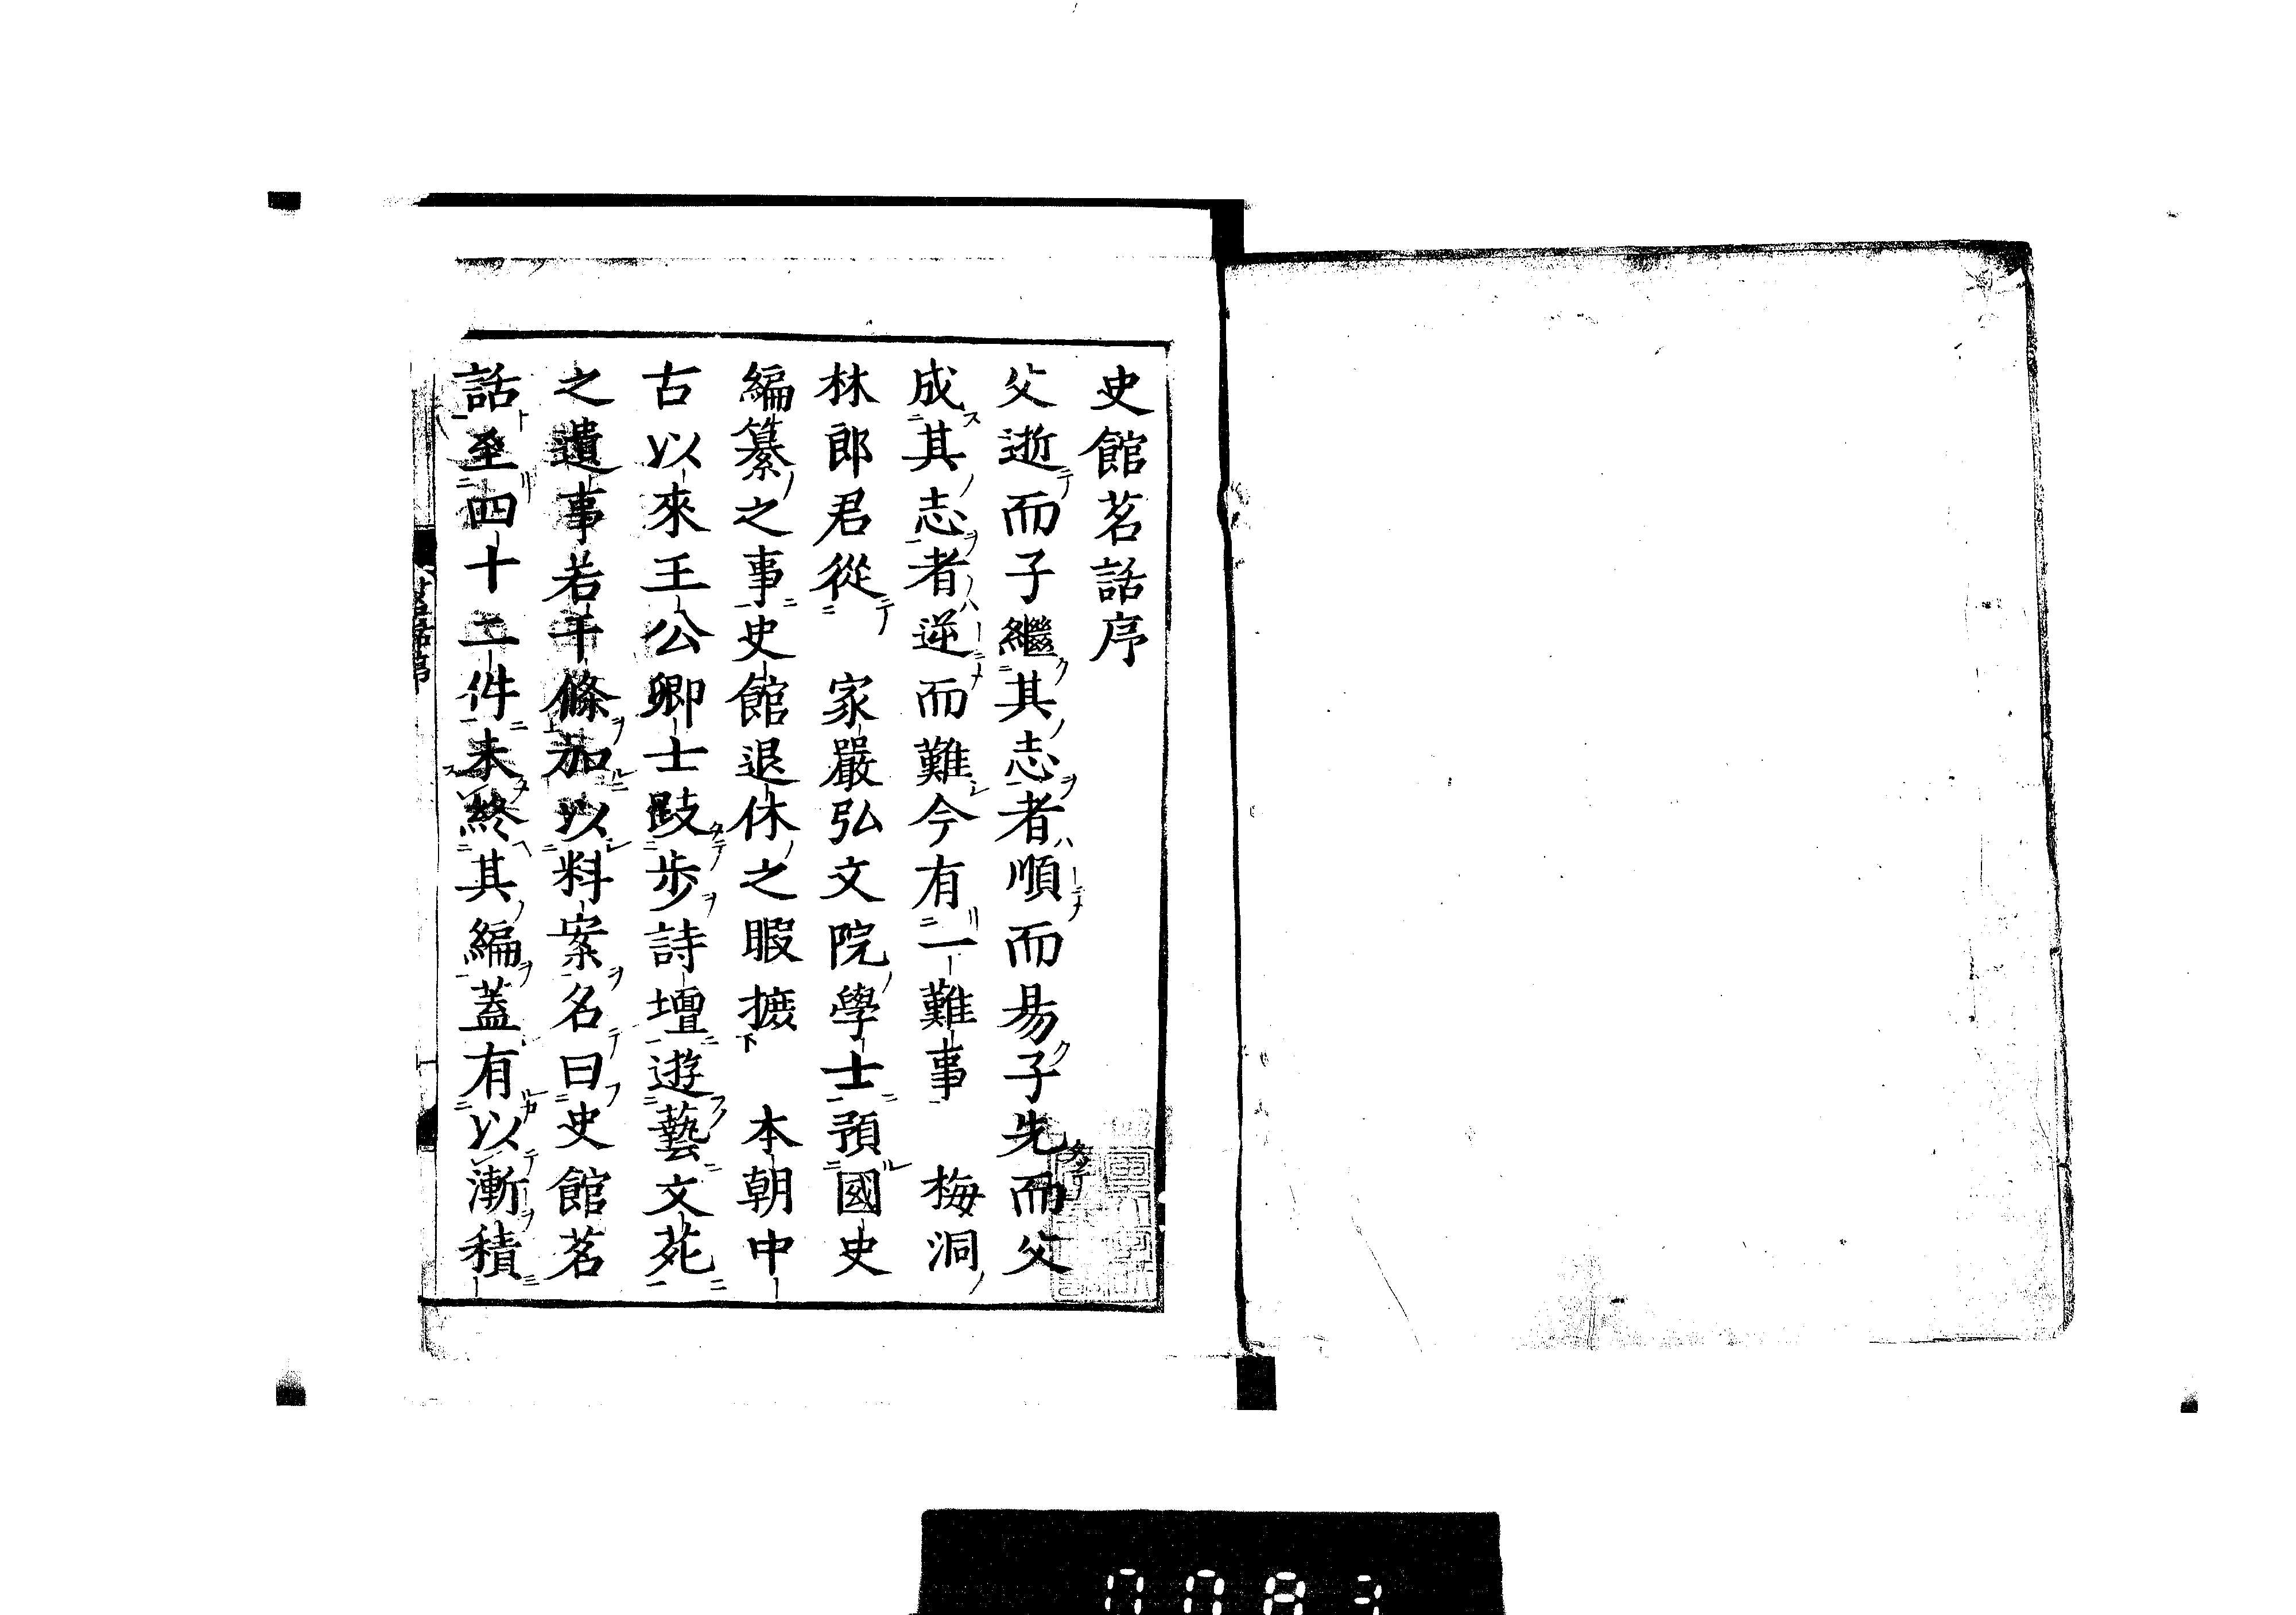 史館茗話序
父逝而子繼其志者順而易子先而父
成其志者逆而難今有一難事　梅洞
林郎君從　家嚴弘文院學士預國史
編纂之事史館退休之暇摭　本朝中
古以來王公卿士跂步詩壇遊藝文苑
之遺事若干條加以料案名曰史館茗
話至四十二件未終其編蓋有以漸積